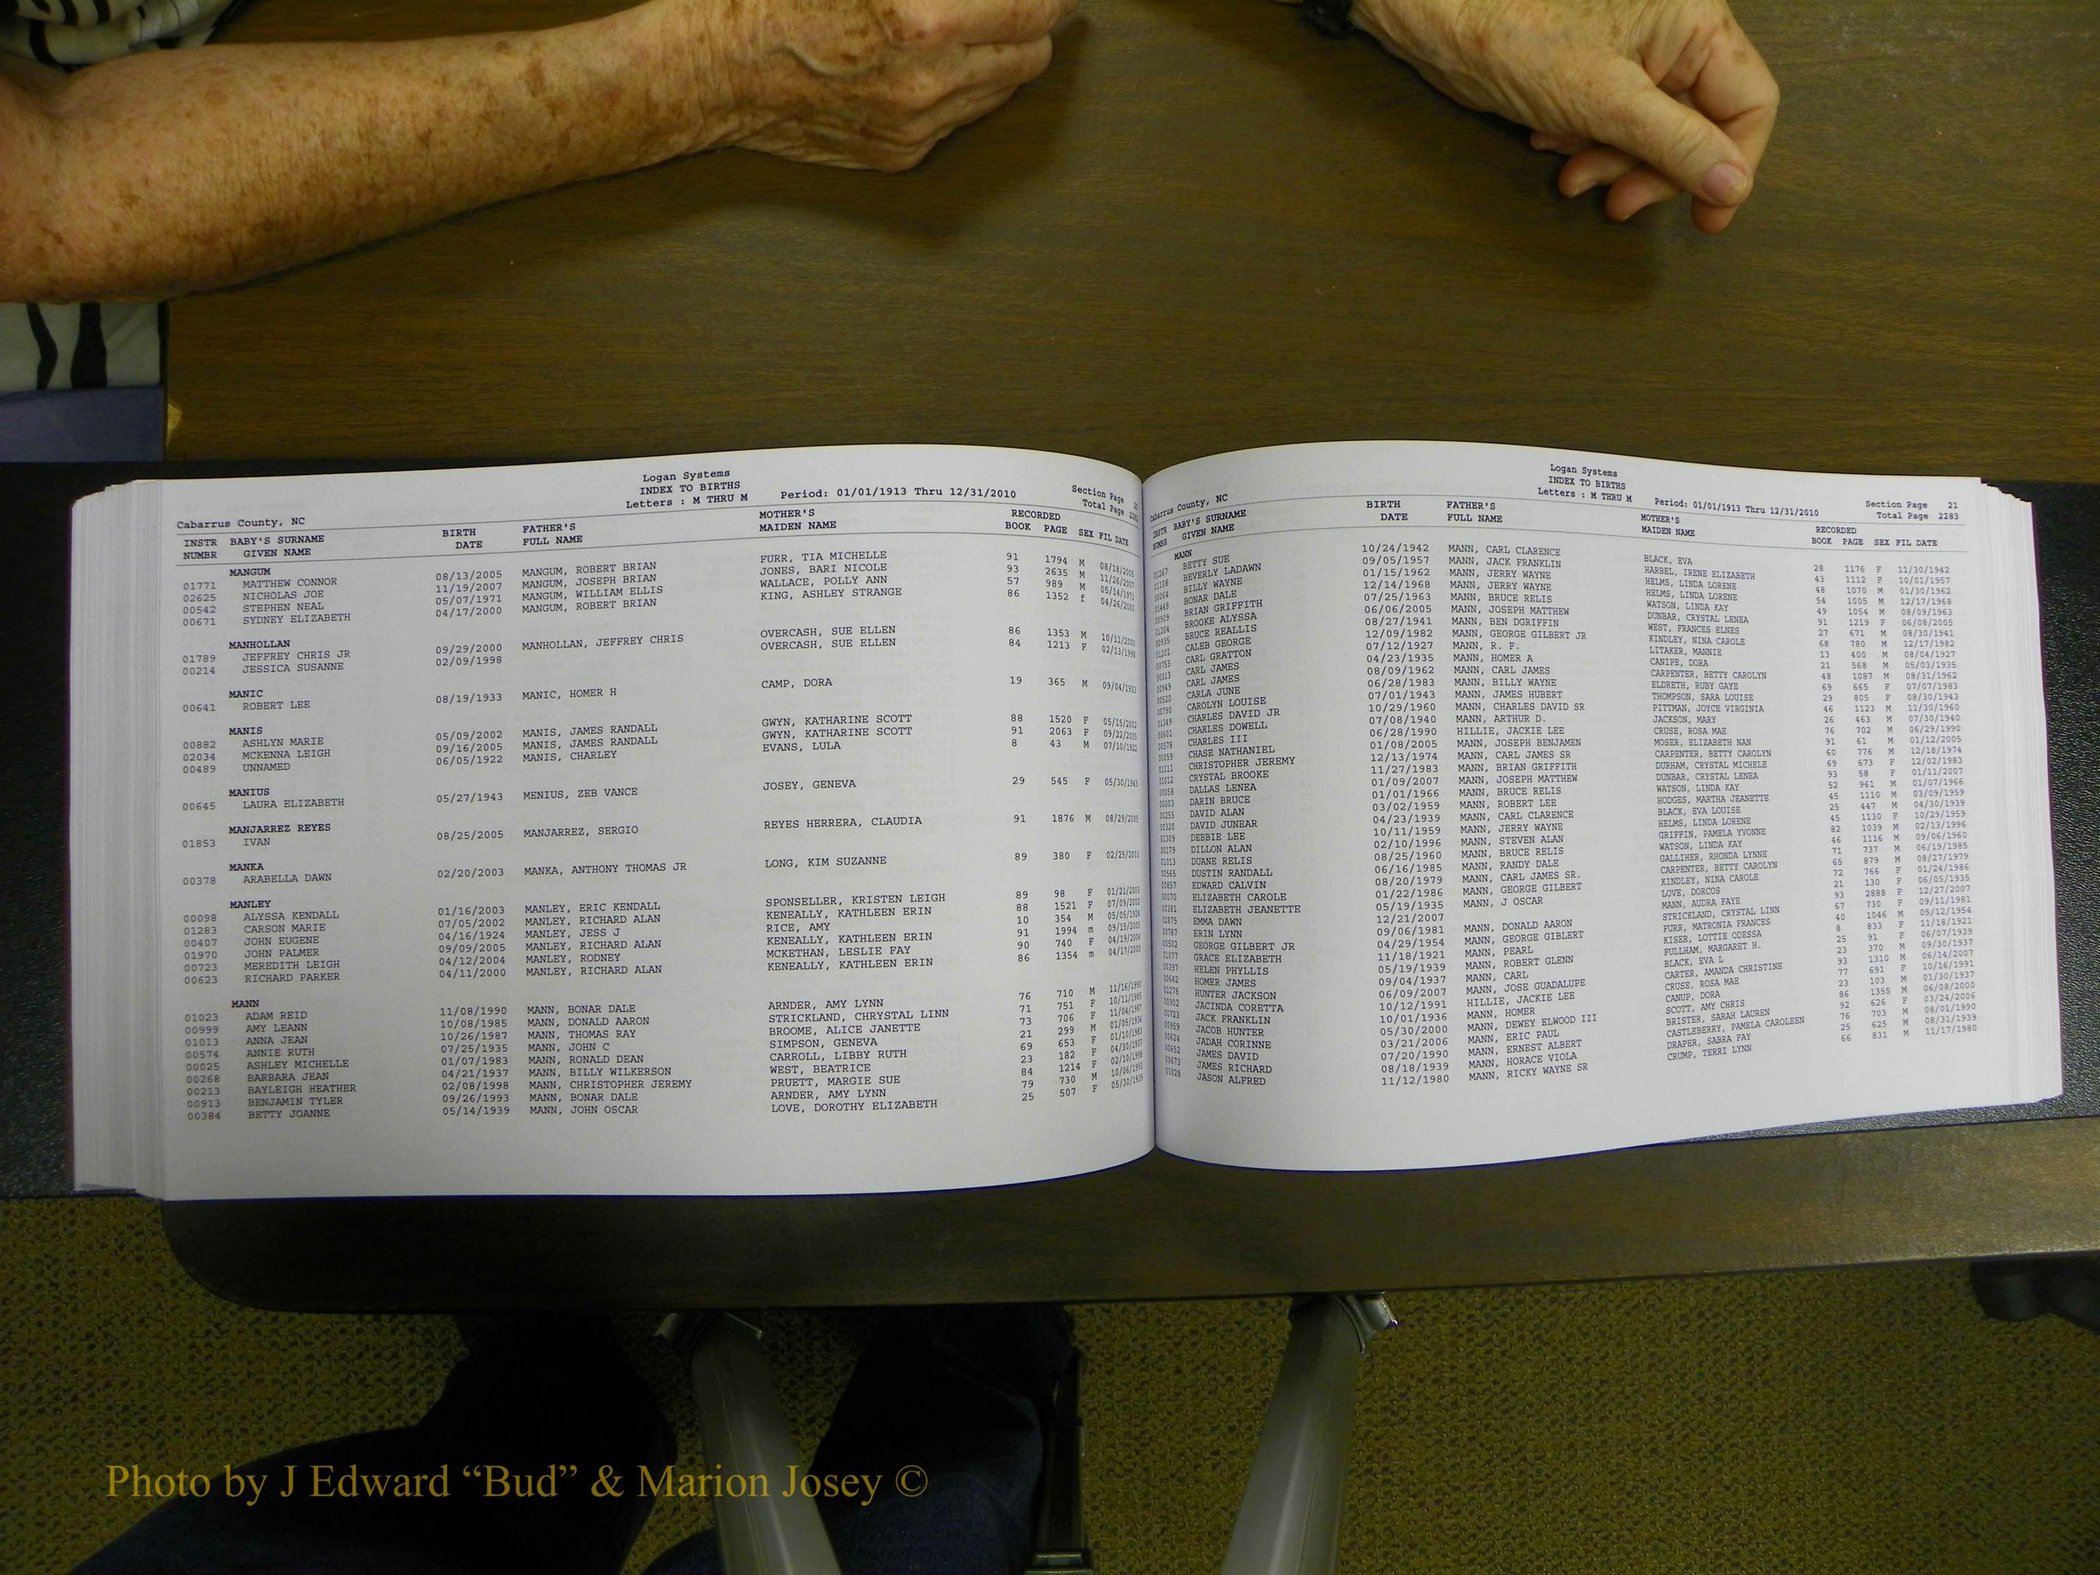 Logan Systems
INDEX TO BIRTHS
Letters : M THRU M Period: 01/01/1913 Thru 12/31/2010 Section Page
Cabarrus County, NC Total Page
INSTR BABY'S SURNAME BIRTH FATHER'S MOTHER'S RECORDED
NUMBR GIVEN NAME DATE FULL NAME MAIDEN NAME BOOK PAGE SEX FIL DATE
MANGUM
01771 MATTHEW CONNOR 08/13/2005 MANGUM, ROBERT BRIAN FURR, TIA MICHELLE 91 1794 M 08/18/2005
02625 NICHOLAS JOE 11/19/2007 MANGUM, JOSEPH BRIAN JONES, BARI NICOLE 93 2635 M 11/26/2007
00542 STEPHEN NEAL 05/07/1971 MANGUM, WILLIAM ELLIS WALLACE, POLLY ANN 57 989 M 05/14/1971
00671 SYDNEY ELIZABETH 04/17/2000 MANGUM, ROBERT BRIAN KING, ASHLEY STRANGE 86 1352 f
MANHOLLAN
01789 JEFFREY CHRIS JR 09/29/2000 MANHOLLAN, JEFFREY CHRIS OVERCASH, SUE ELLEN 86 1353 M 10/11/2000
00214 JESSICA SUSANNE 02/09/1998 OVERCASH, SUE ELLEN 84 1213 F 02/13/1998
MANIC
00641 ROBERT LEE 08/19/1933 MANIC, HOMER H CAMP, DORA 19 365 M 09/04/1933
MANIS
00882 ASHLYN MARIE 05/09/2002 MANIS, JAMES RANDALL GWYN, KATHARINE SCOTT 88 1520 F 05/15/2002
02034 MCKENNA LEIGH 09/16/2005 MANIS, JAMES RANDALL GWYN, KATHARINE SCOTT 91 2063 F 09/22/2005
00489 UNNAMED 06/05/1922 MANIS, CHARLEY EVANS, LULA 8 43 M 07/10/1922
MANIUS
00645 LAURA ELIZABETH 05/27/1943 MENIUS, ZEB VANCE JOSEY, GENEVA 29 545 F 05/30/1943
MANJARREZ REYES
01853 IVAN 08/25/2005 MANJARREZ, SERGIO REYES HERRERA, CLAUDIA 91 1876 M 08/29/2005
MANKA
00378 ARABELLA DAWN 02/20/2003 MANKA, ANTHONY THOMAS JR LONG, KIM SUZANNE 89 380 F 02/25/2003
MANLEY
00098 ALYSSA KENDALL 01/16/2003 MANLEY, ERIC KENDALL SPONSELLER, KRISTEN LEIGH 89 98 F 01/21/2003
01283 CARSON MARIE 07/05/2002 MANLEY, RICHARD ALAN KENEALLY, KATHLEEN ERIN 88 1521 F 07/09/2002
00407 JOHN EUGENE 04/16/1924 MANLEY, JESS J RICE, AMY 10 354 M 05/05/1924
01970 JOHN PALMER 09/09/2005 MANLEY, RICHARD ALAN KENEALLY, KATHLEEN ERIN 91 1994 m 09/15/2005
00723 MEREDITH LEIGH 04/12/2004 MANLEY, RODNEY MCKETHAN, LESLIE FAY 90 740 F 04/19/2004
00623 RICHARD PARKER 04/11/2000 MANLEY, RICHARD ALAN KENEALLY, KATHLEEN ERIN 86 1354 m 04/17/2000
MANN
01023 ADAM REID 11/08/1990 MANN, BONAR DALE ARNDER, AMY LYNN 76 710 M 11/16/1990
00999 AMY LEANN 10/08/1985 MANN, DONALD AARON STRICKLAND, CHRYSTAL LINN 71 751 F 10/11/1985
01013 ANNA JEAN 10/26/1987 MANN, THOMAS RAY BROOME, ALICE JANETTE 73 706 F 11/04/1987
00574 ANNIE RUTH 07/25/1935 MANN, JOHN C SIMPSON, GENEVA 21 299 M
00025 ASHLEY MICHELLE 01/07/1983 MANN, RONALD DEAN CARROLL, LIBBY RUTH 69 653 F
00268 BARBARA JEAN 04/21/1937 MANN, BILLY WILKERSON WEST, BEATRICE 23 182 F 04/30/1937
00213 BAYLEIGH HEATHER 02/08/1998 MANN, CHRISTOPHER JEREMY PRUETT, MARGIE SUE 84 1214 F 02/10/1998
00913 BENJAMIN TYLER 09/26/1993 MANN, BONAR DALE ARNDER, AMY LYNN 79 730 M 10/06/1993
00384 BETTY JOANNE 05/14/1939 MANN, JOHN OSCAR LOVE, DOROTHY ELIZABETH 25 507 F
Logan Systems
INDEX TO BIRTHS
Letters : M THRU M Period: 01/01/1913 Thru 12/31/2010 Section Page 21
Cabarrus County, NC Total Page 2283
INSTR BABY'S SURNAME BIRTH FATHER'S MOTHER'S RECORDED
NUMBR GIVEN NAME DATE FULL NAME MAIDEN NAME BOOK PAGE SEX FIL DATE
MANN
BETTY SUE 10/24/1942 MANN, CARL CLARENCE BLACK, EVA 28 1176 F 11/30/1942
BEVERLY LADAWN 09/05/1957 MANN, JACK FRANKLIN HARBEL, IRENE ELIZABETH 43 1112 F 10/01/1957
BILLY WAYNE 01/15/1962 MANN, JERRY WAYNE HELMS, LINDA LORENE 48 1070 M 01/30/1962
BONAR DALE 12/14/1968 MANN, JERRY WAYNE HELMS, LINDA LORENE 54 1005 M 12/17/1968
BRIAN GRIFFITH 07/25/1963 MANN, BRUCE RELIS WATSON, LINDA KAY 49 1054 M 08/09/1963
BROOKE ALYSSA 06/06/2005 MANN, JOSEPH MATTHEW DUNBAR, CRYSTAL LENEA 91 1219 F 06/08/2005
BRUCE REALLIS 08/27/1941 MANN, BEN DGRIFFIN WEST, FRANCES ELNES 27 671 M 08/30/1941
CALEB GEORGE 12/09/1982 MANN, GEORGE GILBERT JR KINDLEY, NINA CAROLE 68 780 M 12/17/1982
CARL GRATTON 07/12/1927 MANN, R. F. LITAKER, MANNIE 13 400 M 08/04/1927
CARL JAMES 04/23/1935 MANN, HOMER A CANIPE, DORA 21 568 M 05/03/1935
CARL JAMES 08/09/1962 MANN, CARL JAMES CARPENTER, BETTY CAROLYN 48 1087 M 08/31/1962
CARLA JUNE 06/28/1983 MANN, BILLY WAYNE ELDRETH, RUBY GAYE 69 665 F 07/07/1983
CAROLYN LOUISE 07/01/1943 MANN, JAMES HUBERT THOMPSON, SARA LOUISE 29 805 F 08/30/1943
CHARLES DAVID JR 10/29/1960 MANN, CHARLES DAVID SR PITTMAN, JOYCE VIRGINIA 46 1123 M 11/30/1960
CHARLES DOWELL 07/08/1940 MANN, ARTHUR D. JACKSON, MARY 26 463 M 07/30/1940
CHARLES III 06/28/1990 HILLIE, JACKIE LEE CRUSE, ROSA MAE 76 702 M 06/29/1990
CHASE NATHANIEL 01/08/2005 MANN, JOSEPH BENJAMEN MOSER, ELIZABETH NAN 91 61 M 01/12/2005
CHRISTOPHER JEREMY 12/13/1974 MANN, CARL JAMES SR CARPENTER, BETTY CAROLYN 60 776 M 12/18/1974
CRYSTAL BROOKE 11/27/1983 MANN, BRIAN GRIFFITH DURHAM, CRYSTAL MICHELE 69 673 F 12/02/1983
DALLAS LENEA 01/09/2007 MANN, JOSEPH MATTHEW DUNBAR, CRYSTAL LENEA 93 58 F 01/11/2007
DARIN BRUCE 01/01/1966 MANN, BRUCE RELIS WATSON, LINDA KAY 52 961 M 01/07/1966
DAVID ALAN 03/02/1959 MANN, ROBERT LEE HODGES, MARTHA JEANETTE 45 1110 M 03/09/1959
DAVID JUNEAR 04/23/1939 MANN, CARL CLARENCE BLACK, EVA LOUISE 25 447 M 04/30/1939
DEBBIE LEE 10/11/1959 MANN, JERRY WAYNE HELMS, LINDA LORENE 45 1130 F 10/29/1959
DILLON ALAN 02/10/1996 MANN, STEVEN ALAN GRIFFIN, PAMELA YVONNE 82 1039 M 02/13/1996
DUANE RELIS 08/25/1960 MANN, BRUCE RELIS WATSON, LINDA KAY 46 1116 M 09/06/1960
DUSTIN RANDALL 06/16/1985 MANN, RANDY DALE GALLIHER, RHONDA LYNNE 71 737 M 06/19/1985
EDWARD CALVIN 08/20/1979 MANN, CARL JAMES SR. CARPENTER, BETTY CAROLYN 65 879 M 08/27/1979
ELIZABETH CAROLE 01/22/1986 MANN, GEORGE GILBERT KINDLEY, NINA CAROLE 72 766 F 01/24/1986
ELIZABETH JEANETTE 05/19/1935 MANN, J OSCAR LOVE, DORCOS 21 130 F 06/05/1935
EMMA DAWN 12/21/2007 MANN, AUDRA FAYE 93 2888 F 12/27/2007
ERIN LYNN 09/06/1981 MANN, DONALD AARON STRICKLAND, CRYSTAL LINN 67 730 F 09/11/1981
GEORGE GILBERT JR 04/29/1954 MANN, GEORGE GIBLERT FURR, MATRONIA FRANCES 40 1046 M 05/12/1954
GRACE ELIZABETH 11/18/1921 MANN, PEARL KISER, LOTTIE ODESSA 8 833 F 11/18/1921
HELEN PHYLLIS 05/19/1939 MANN, ROBERT GLENN FULLHAM, MARGARET H. 25 91 F 06/07/1939
HOMER JAMES 09/04/1937 MANN, CARL BLACK, EVA L 23 370 M 09/30/1937
HUNTER JACKSON 06/09/2007 MANN, JOSE GUADALUPE CARTER, AMANDA CHRISTINE 93 1310 M 06/14/2007
JACINDA CORETTA 10/12/1991 HILLIE, JACKIE LEE CRUSE, ROSA MAE 77 691 F 10/16/1991
JACK FRANKLIN 10/01/1936 MANN, HOMER CANUP, DORA 23 103 M 01/30/1937
JACOB HUNTER 05/30/2000 MANN, DEWEY ELWOOD III SCOTT, AMY CHRIS 86 1355 M 06/08/2000
JADAH CORINNE 03/21/2006 MANN, ERIC PAUL BRISTER, SARAH LAUREN 92 626 F 03/24/2006
JAMES DAVID 07/20/1990 MANN, ERNEST ALBERT CASTLEBERRY, PAMELA CAROLEEN 76 703 M 08/01/1990
JAMES RICHARD 08/18/1939 MANN, HORACE VIOLA DRAPER, SABRA FAY 25 625 M 08/31/1939
01028 JASON ALFRED 11/12/1980 MANN, RICKY WAYNE SR CRUMP, TERRI LYNN 66 831 M 11/17/1980
Photo by J Edward “Bud” & Marion Josey ©